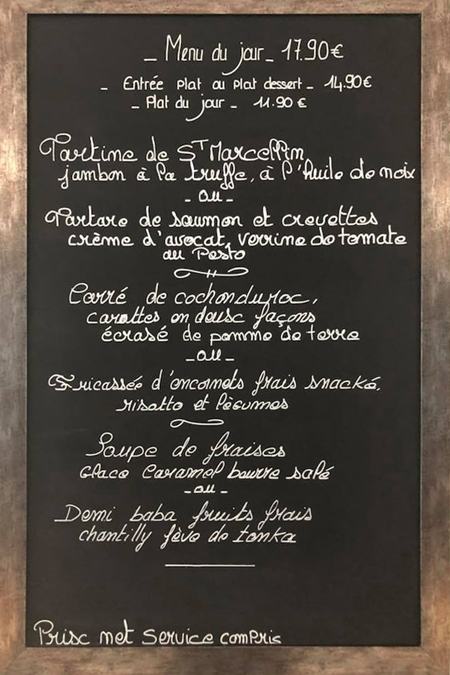 _ Menu du jour _ 17.90€
- Entrée Plat ou Plat dessert - 14.90€
- Plat du jour - 11.90€
Tartine de ST Marcellin,
jambon à la truffe, à l'huile de noix
- ou -
Tartare de saumon et crevettes
crème d'avocat, verrine de tomate
au Pesto
Carré de cochon duroc,
carottes en deusc façons
écrasé de pomme de terre
- ou -
Fricassée d'encornets frais snacké,
risotto et légumes
Soupe de fraises
Glace Caramel beurre salé
- ou -
Demi baba fruits frais
chantilly fève de tonka
Prisc net service compris